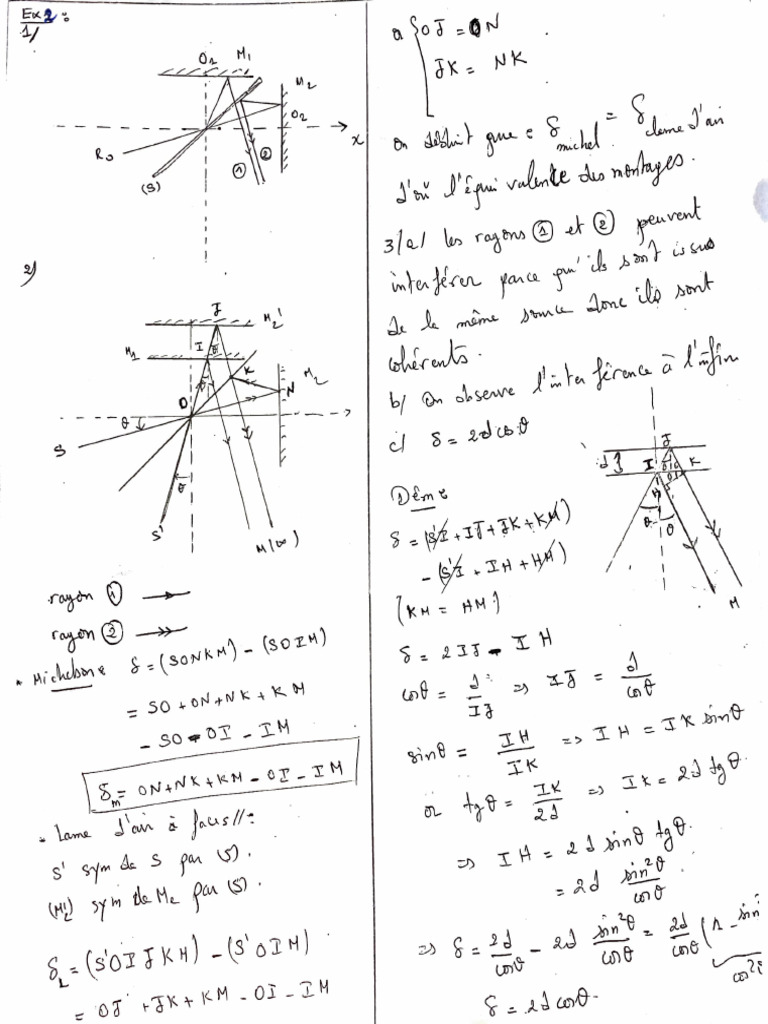 Ex 2 :
1/
O1 M1
M2
O2
x
R0
(S)
1 2
2)
J M2'
M1 I θ
K
M2
N
O
θ
S
θ
S'
M(∞)
rayon ①
rayon ②
* Michelson δ = (SONKM) - (SOIM)
= SO + ON + NK + KM
- SO - OI - IM
δm = ON + NK + KM - OI - IM
* Lame d'air à faces // :
S' sym de S par (S).
(M2') sym de M2 par (S).
δL = (S'OIJKM) - (S'OIM)
= OJ + JK + KM - OI - IM
a { OJ = ON
JK = NK
on déduit que : δ michel = δ lame d'air
d'où l'équivalence des montages.
3/a/ les rayons ① et ② peuvent
interférer parce qu'ils sont issus
de la même source donc ils sont
cohérents.
b/ On observe l'interférence à l'infini
c/ δ = 2d cos θ
J
d I K
H
θ θ
M
Dém :
δ = (S'I + IJ + JK + KM)
- (S'I + IH + HM)
(KM = HM)
δ = 2IJ - IH
cosθ = d/IJ ⇒ IJ = d/cosθ
sinθ = IH/IK ⇒ IH = IK sinθ
or tgθ = IK/2d ⇒ IK = 2d tgθ.
⇒ IH = 2d sinθ tgθ.
= 2d sin²θ/cosθ
⇒ δ = 2d/cosθ - 2d sin²θ/cosθ = 2d/cosθ (1 - sin
cos²
δ = 2d cosθ.